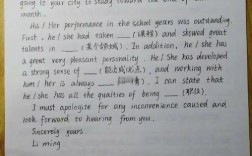 going to your city to study toward the end of
month.
Ha / Her performance in the school years was outstanding.
First, he / she had taken ___ (课程) and showed great
talents in ___ (某个领域). In addition, he / she has
a great very pleasant personality. He / She has developed
a strong sense of ___ , and working with
him / her is always ___ . I can state that
he / she has all the qualties of being ___ (职位).
I must apologise for any inconvenience caused and
look forward to hearing from you.
Sincerely yours
Li ming